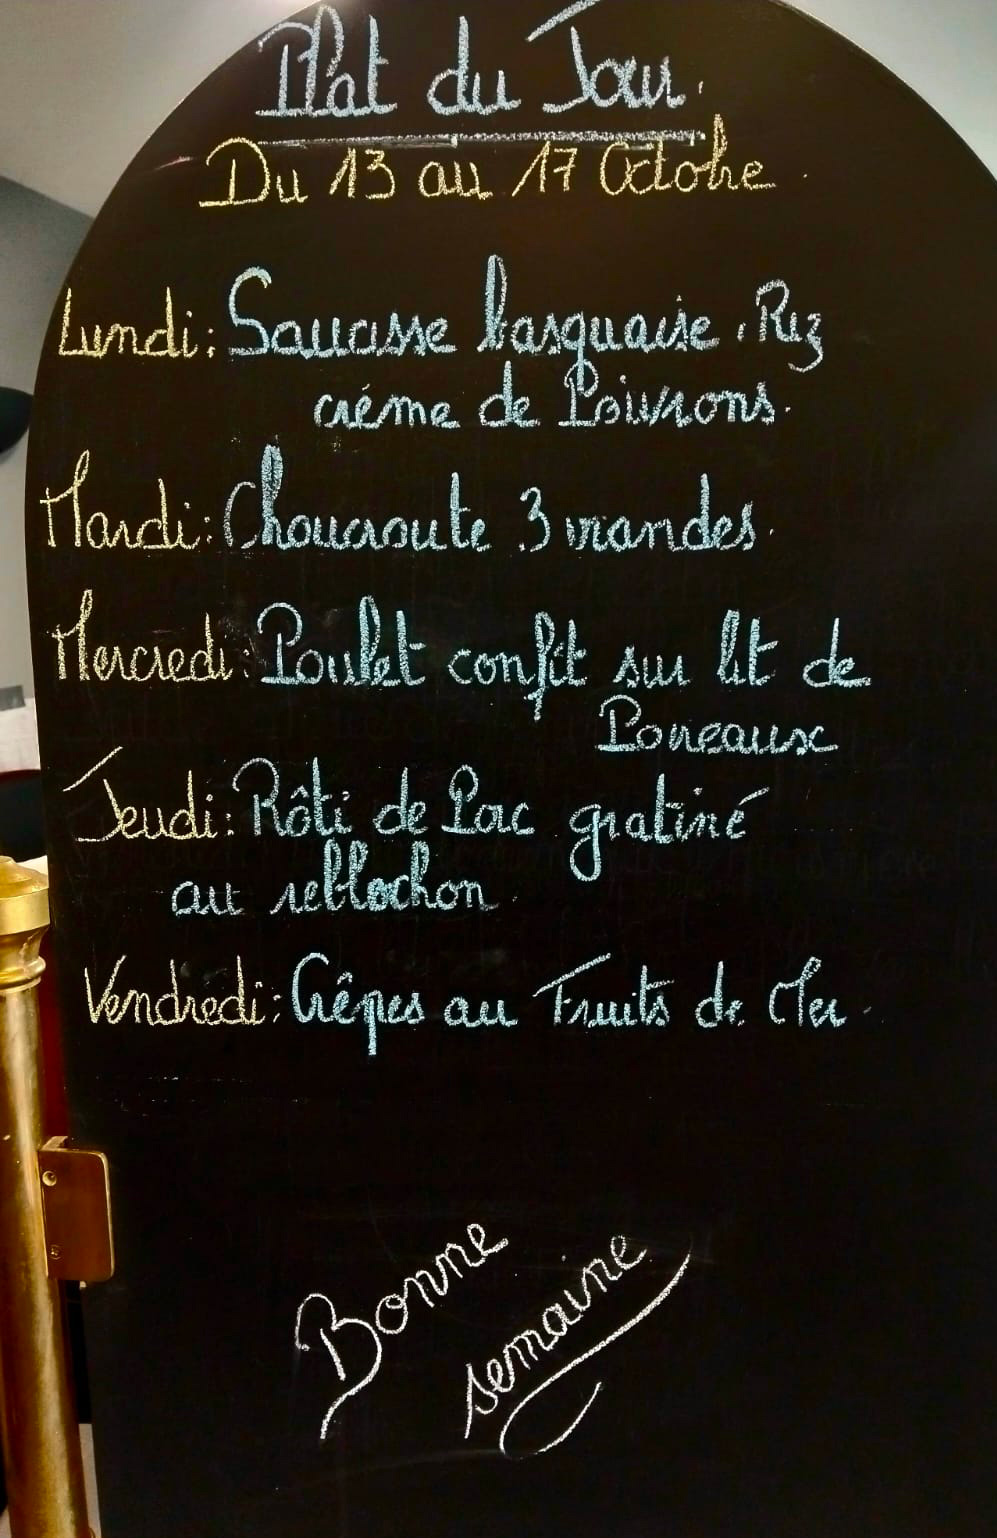 Plat du Jour.
Du 13 au 17 Octobre.
Lundi: Saucisse basquaise, Riz
crème de Poivrons.
Mardi: Choucroute 3 viandes.
Mercredi: Poulet confit sur lit de
Poireaux
Jeudi: Rôti de Porc gratiné
au reblochon.
Vendredi: Crêpes au Fruits de Mer.
Bonne
semaine